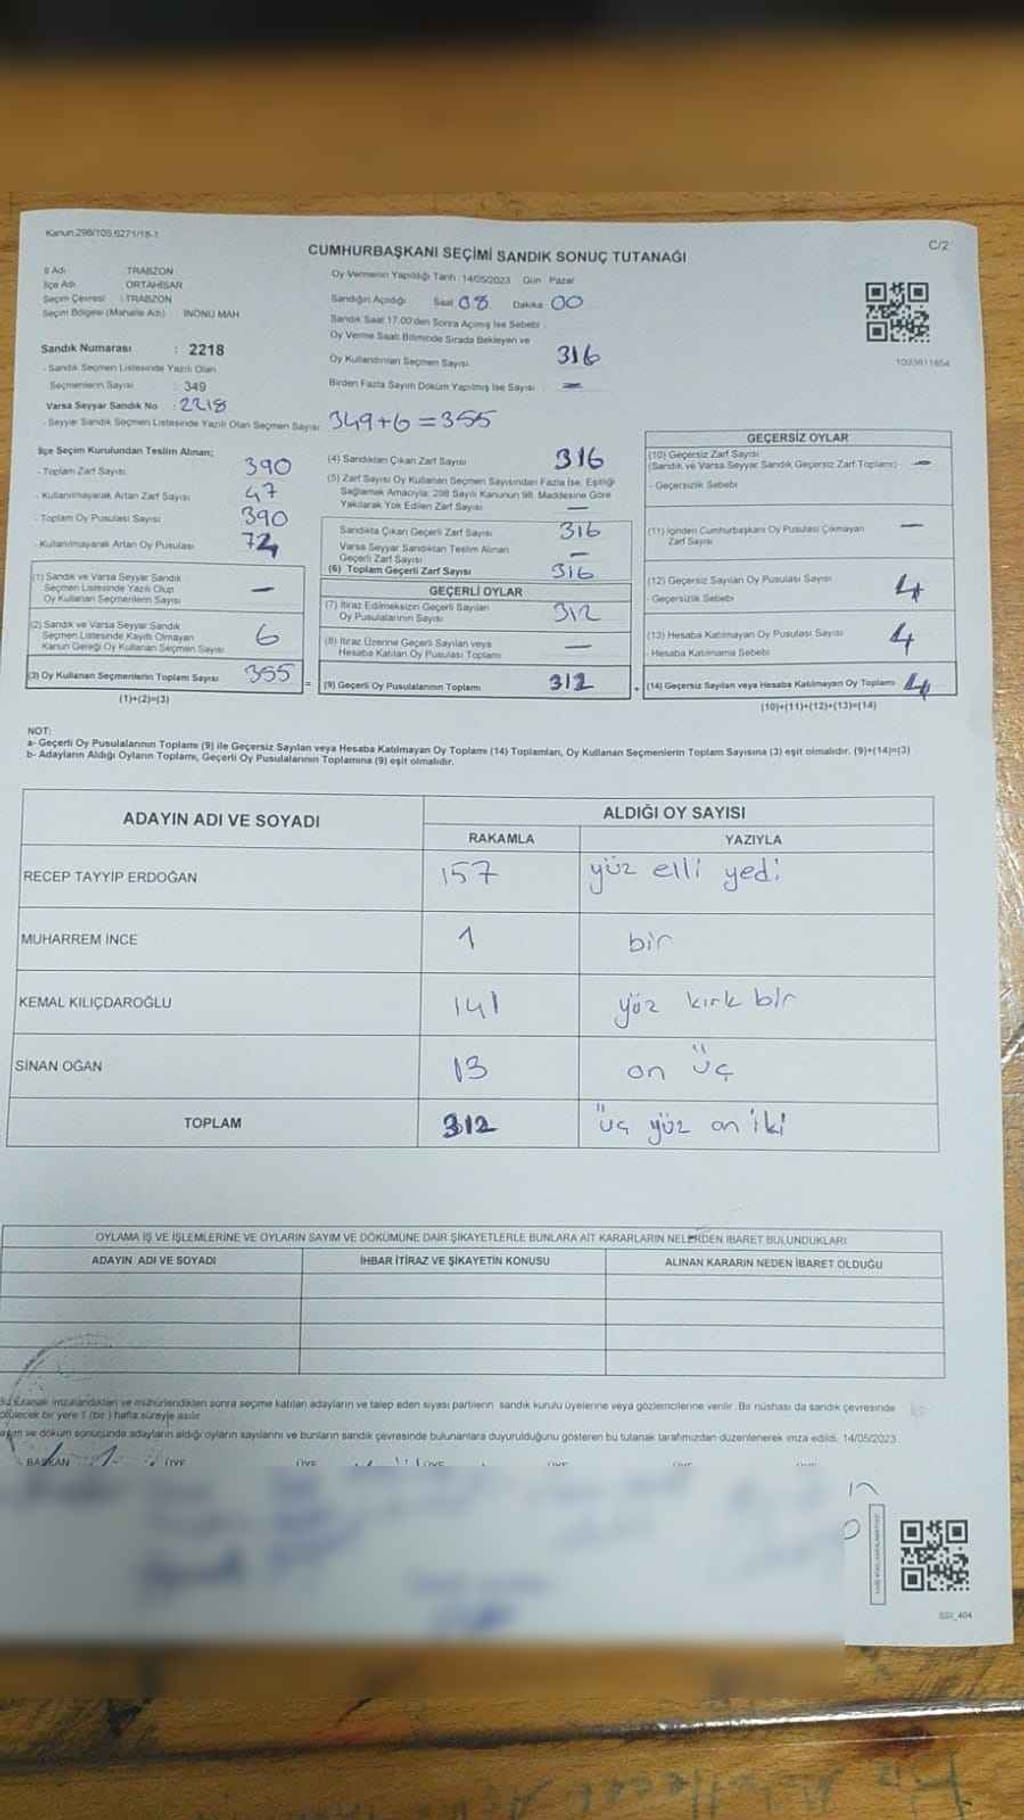 Kanun 298/105,6271/18-1
C/2
CUMHURBAŞKANI SEÇİMİ SANDIK SONUÇ TUTANAĞI
İl Adı TRABZON
İlçe Adı ORTAHİSAR
Seçim Çevresi : TRABZON
Seçim Bölgesi (Mahalle Adı) İNÖNÜ MAH
Sandık Numarası : 2218
- Sandık Seçmen Listesinde Yazılı Olan
Seçmenlerin Sayısı : 349
Varsa Seyyar Sandık No : 2218
- Seyyar Sandık Seçmen Listesinde Yazılı Olan Seçmen Sayısı 349+6=355
Oy Vermenin Yapıldığı Tarih :14/05/2023 Gün Pazar
Sandığın Açıldığı Saat 08 Dakika 00
Sandık Saat 17.00'den Sonra Açılmış İse Sebebi
Oy Verme Saati Bitiminde Sırada Bekleyen ve
Oy Kullandırılan Seçmen Sayısı 316
Birden Fazla Sayım Döküm Yapılmış İse Sayısı —
İlçe Seçim Kurulundan Teslim Alınan;
- Toplam Zarf Sayısı 390
- Kullanılmayarak Artan Zarf Sayısı 47
- Toplam Oy Pusulası Sayısı 390
- Kullanılmayarak Artan Oy Pusulası 72
(1) Sandık ve Varsa Seyyar Sandık
Seçmen Listesinde Yazılı Olup
Oy Kullanan Seçmenlerin Sayısı —
(2) Sandık ve Varsa Seyyar Sandık
Seçmen Listesinde Kayıtlı Olmayan
Kanun Gereği Oy Kullanan Seçmen Sayısı 6
(3) Oy Kullanan Seçmenlerin Toplam Sayısı 355
(1)+(2)=(3)
(4) Sandıktan Çıkan Zarf Sayısı 316
(5) Zarf Sayısı Oy Kullanan Seçmen Sayısından Fazla İse, Eşitliği
Sağlamak Amacıyla, 298 Sayılı Kanunun 98. Maddesine Göre
Yakılarak Yok Edilen Zarf Sayısı —
Sandıkta Çıkan Geçerli Zarf Sayısı 316
Varsa Seyyar Sandıktan Teslim Alınan
Geçerli Zarf Sayısı —
(6) Toplam Geçerli Zarf Sayısı 316
GEÇERLİ OYLAR
(7) İtiraz Edilmeksizin Geçerli Sayılan
Oy Pusulalarının Sayısı 312
(8) İtiraz Üzerine Geçerli Sayılan veya
Hesaba Katılan Oy Pusulası Toplamı —
= (9) Geçerli Oy Pusulalarının Toplamı 312
GEÇERSİZ OYLAR
(10) Geçersiz Zarf Sayısı
(Sandık ve Varsa Seyyar Sandık Geçersiz Zarf Toplamı) —
- Geçersizlik Sebebi
(11) İçinden Cumhurbaşkanı Oy Pusulası Çıkmayan
Zarf Sayısı —
(12) Geçersiz Sayılan Oy Pusulası Sayısı 4
- Geçersizlik Sebebi
(13) Hesaba Katılmayan Oy Pusulası Sayısı 4
- Hesaba Katılmama Sebebi
+ (14) Geçersiz Sayılan veya Hesaba Katılmayan Oy Toplamı 4
(10)+(11)+(12)+(13)=(14)
NOT:
a- Geçerli Oy Pusulalarının Toplamı (9) ile Geçersiz Sayılan veya Hesaba Katılmayan Oy Toplamı (14) Toplamları, Oy Kullanan Seçmenlerin Toplam Sayısına (3) eşit olmalıdır. (9)+(14)=(3)
b- Adayların Aldığı Oyların Toplamı, Geçerli Oy Pusulalarının Toplamına (9) eşit olmalıdır.
ADAYIN ADI VE SOYADI
ALDIĞI OY SAYISI
RAKAMLA YAZIYLA
RECEP TAYYİP ERDOĞAN 157 yüz elli yedi
MUHARREM İNCE 1 bir
KEMAL KILIÇDAROĞLU 141 yüz kırk bir
SİNAN OĞAN 13 on üç
TOPLAM 312 üç yüz on iki
OYLAMA İŞ VE İŞLEMLERİNE VE OYLARIN SAYIM VE DÖKÜMÜNE DAİR ŞİKAYETLERLE BUNLARA AİT KARARLARIN NELERDEN İBARET BULUNDUKLARI
ADAYIN ADI VE SOYADI İHBAR İTİRAZ VE ŞİKAYETİN KONUSU ALINAN KARARIN NEDEN İBARET OLDUĞU
imzalandıktan ve mühürlendikten sonra seçime katılan adayların ve talep eden siyasi partilerin sandık kurulu üyelerine veya gözlemcilerine verilir. Bir nüshası da sandık çevresinde
bir yere 1 (bir) hafta süreyle asılır
ve döküm sonucunda adayların aldığı oyların sayılarını ve bunların sandık çevresinde bulunanlara duyurulduğunu gösteren bu tutanak tarafımızdan düzenlenerek imza edildi. 14/05/2023
BAŞKAN ÜYE ÜYE ÜYE